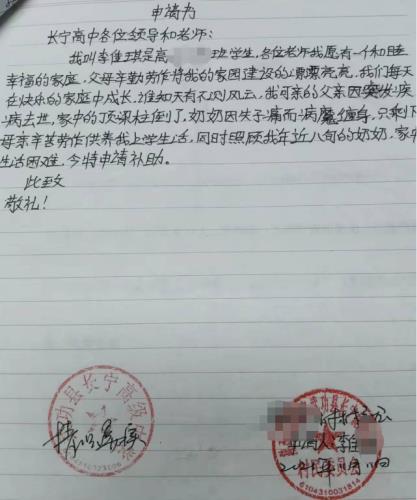 申请力
长宁高中各位领导和老师:
我叫李佳琪是高 班学生,各位老师我愿有一和睦
幸福的家庭,父母辛勤劳作将我的家园建设的漂漂亮亮,我们每天
在快乐的家庭中成长,谁知天有不测风云,我可亲的父亲因突发疾
病去世,家中的顶梁柱倒了,奶奶因失子痛而病魔缠身,只剩下
母亲辛苦劳作供养我上学生活,同时照顾我年近八旬的奶奶,家中
生活困难,今特申请补助。
此致
敬礼!
武功县长宁高级中学
6104310031814